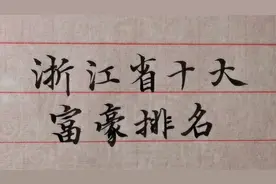 浙江省十大
富豪排名